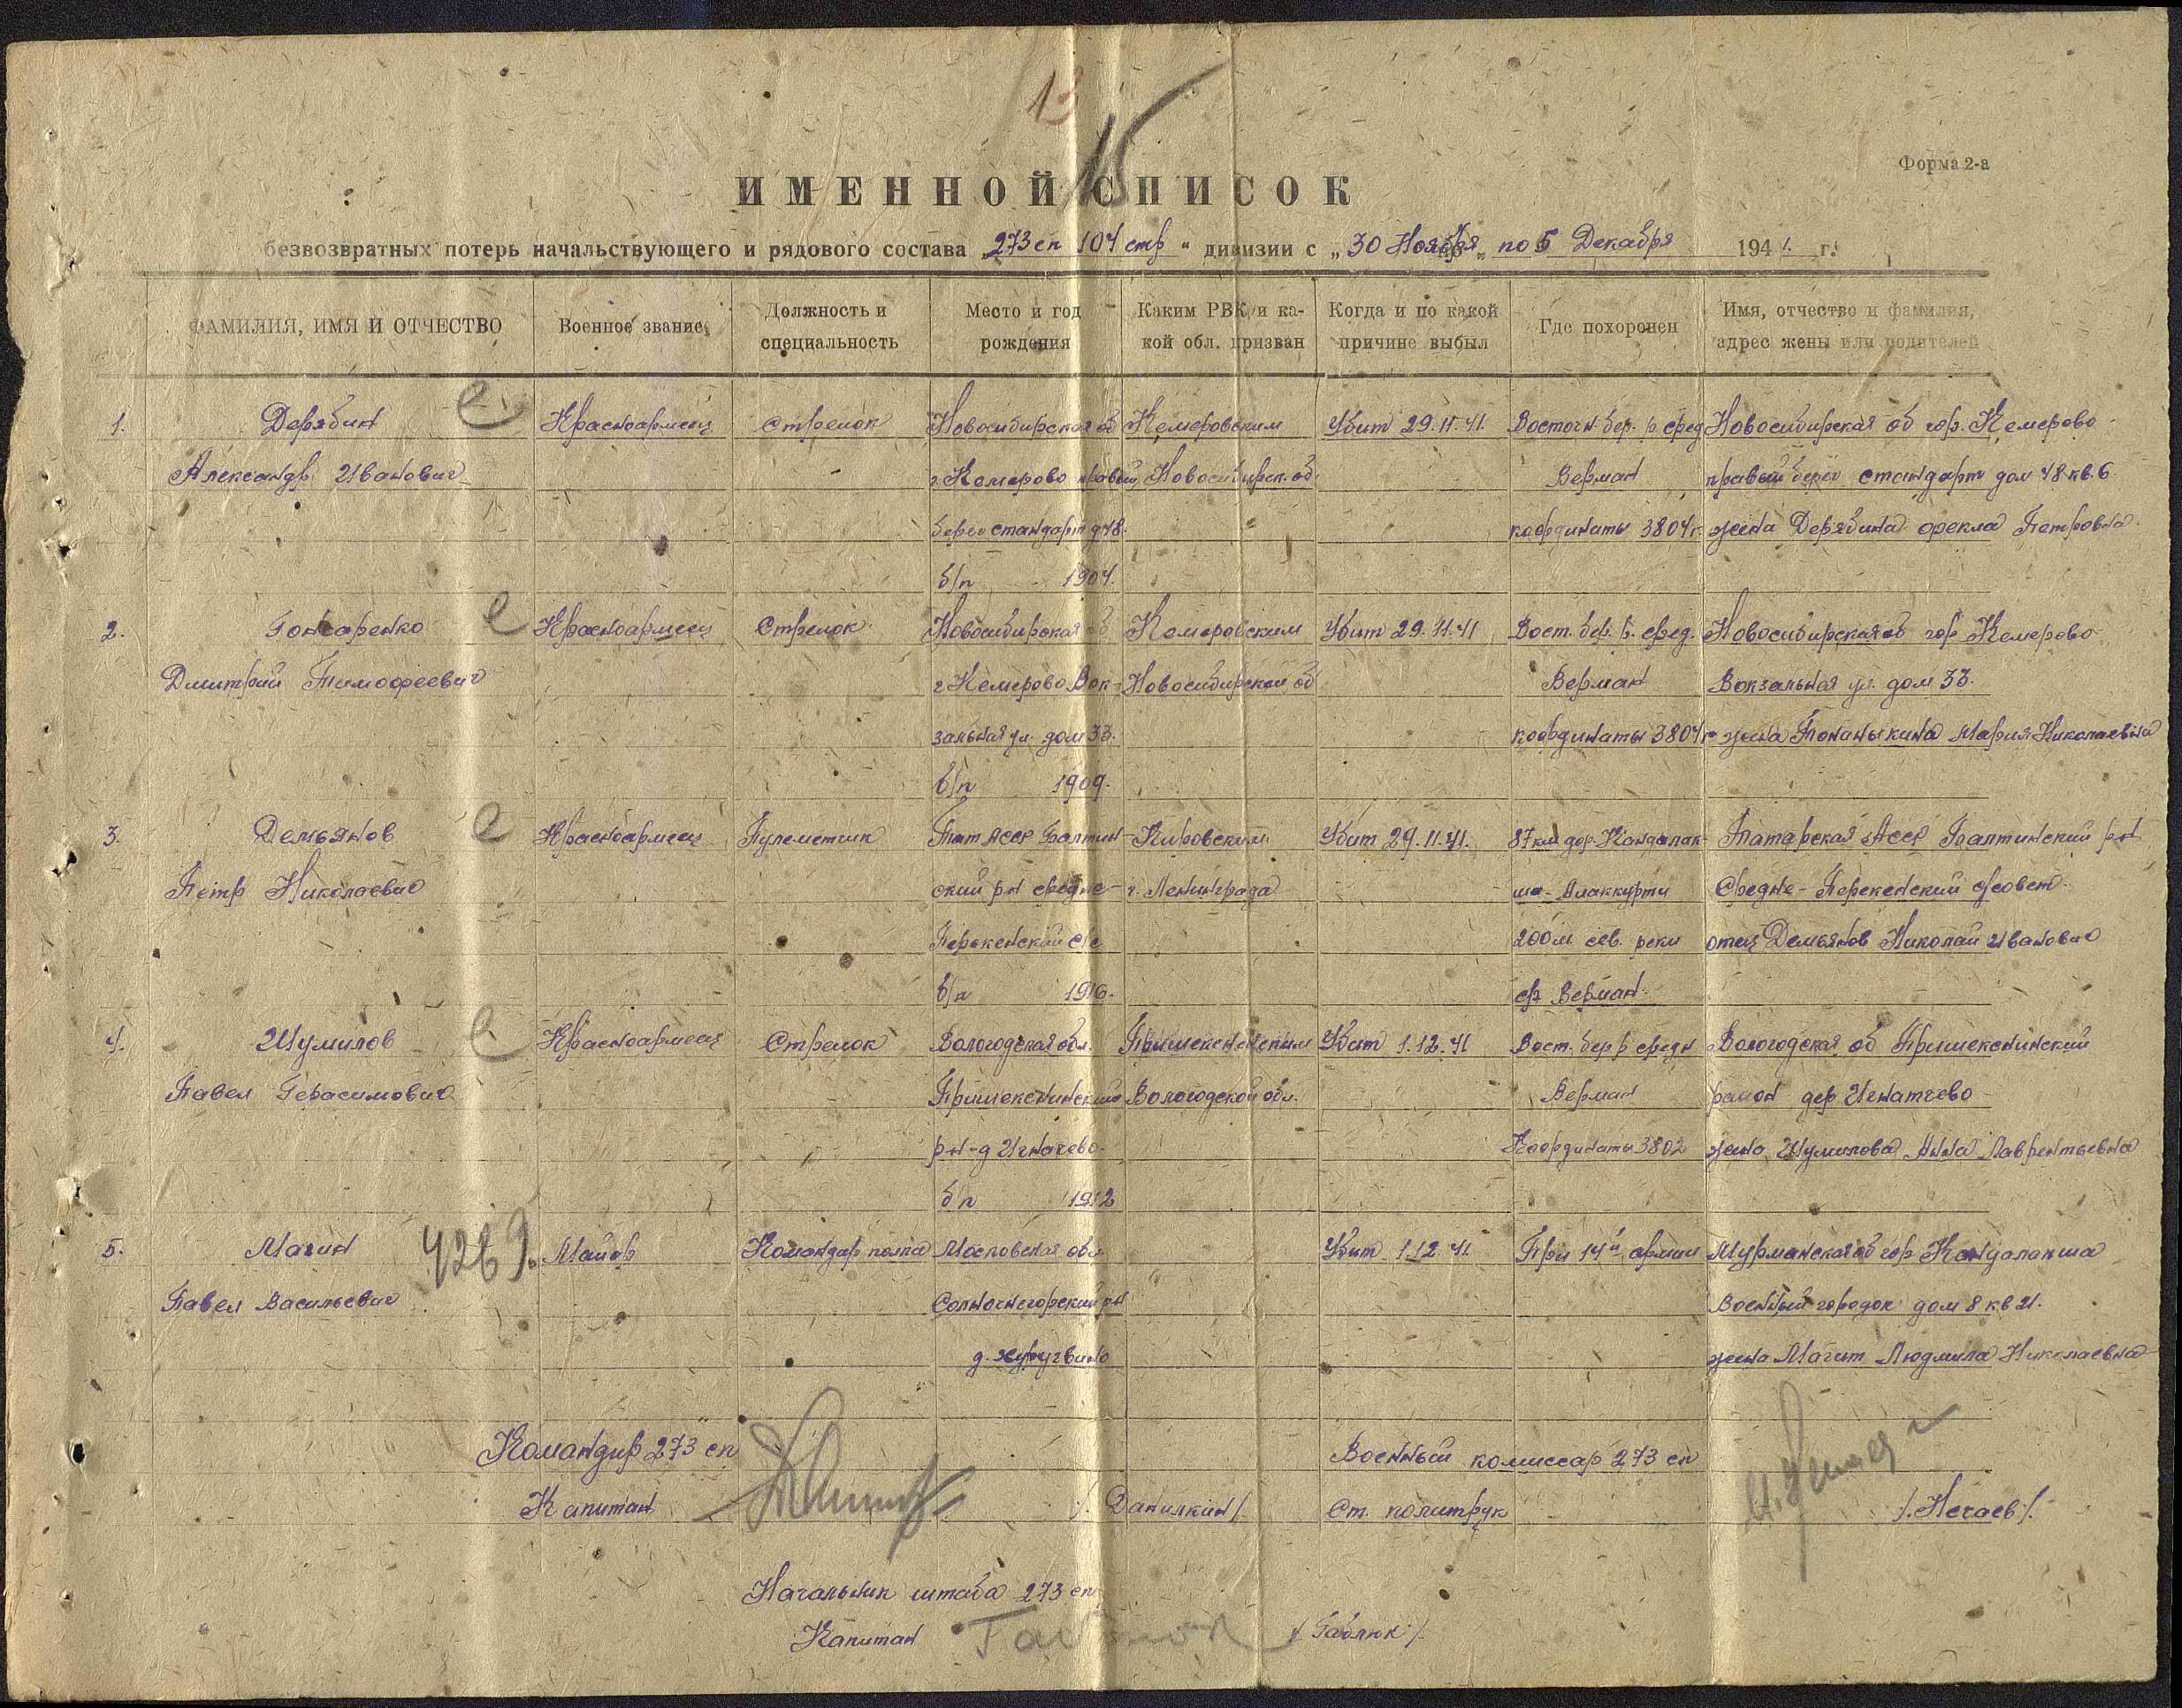 13
15
Форма 2-а
ИМЕННОЙ СПИСОК
безвозвратных потерь начальствующего и рядового состава „273 сп 104 стр“ дивизии с „30 Ноября„ по 5 Декабря 1941 г.
ФАМИЛИЯ, ИМЯ И ОТЧЕСТВО
Военное звание
Должность и
специальность
Место и год
рождения
Каким РВК и ка-
кой обл. призван
Когда и по какой
причине выбыл
Где похоронен
Имя, отчество и фамилия,
адрес жены или родителей
1.
Дерябин
Александр Иванович
Красноармеец
Стрелок
Новосибирская об
г. Кемерово правый
берег стандарт д 48.
б/п 1904.
Кемеровским
Новосибирск. об.
Убит 29.11.41.
Восточн. бер. р. сред
Верман
координаты 3804г.
Новосибирская об гор. Кемерово
правый берег стандарт дом 48 кв. 6.
жена Дерябина Фекла Петровна.
2.
Гончаренко
Дмитрий Тимофеевич
Красноармеец
Стрелок.
Новосибирская об
г Кемерово Вок-
зальная ул. дом 33.
б/п 1909.
Кемеровским
Новосибирской об
Убит 29.11.41
Вост. бер. р. сред.
Верман
координаты 3804г
Новосибирская об гор Кемерово
Вокзальная ул. дом 33.
жена Мария Николаевна
3.
Демьянов
Петр Николаевич
Красноармеец
Пулеметчик
Тат АССР Балтин-
ский рн средне-
с/с
б/п 1916.
Кировским
г. Ленинграда
Убит 29.11.41.
87 км дор. Кандалак-
ша - Алаккурти
200 м. сев. реки
ср Верман.
Татарская АССР Балтинский рн
Средне - с/совет.
отец Демьянов Николай Иванович
4.
Шумилов
Павел Герасимович
Красноармеец
Стрелок
Вологодская обл.
Пришекснинский
рн - д Игначево.
б п 1912
Пришекснинским
Вологодской обл.
Убит 1.12.41
Вост. бер р средн
Верман
Координаты 3802
Вологодская об Пришекснинский
район дер Игнатчево
жена Шумилова Анна Лаврентьевна
5.
Магин
Павел Васильевич
4269.
Майор
Командир полка
Московская обл
Солнечногорский рн
Убит 1.12.41
При 14й армии
Мурманская об гор Кандалакша
Военный городок дом 8 кв 21.
жена Магит Людмила Николаевна
Командир 273 сп
Капитан /. Данилкин /.
Военный комиссар 273 сп
Ст. политрук /. Нечаев /.
Начальник штаба 273 сп
Капитан Габлюк /. Габлюк /.